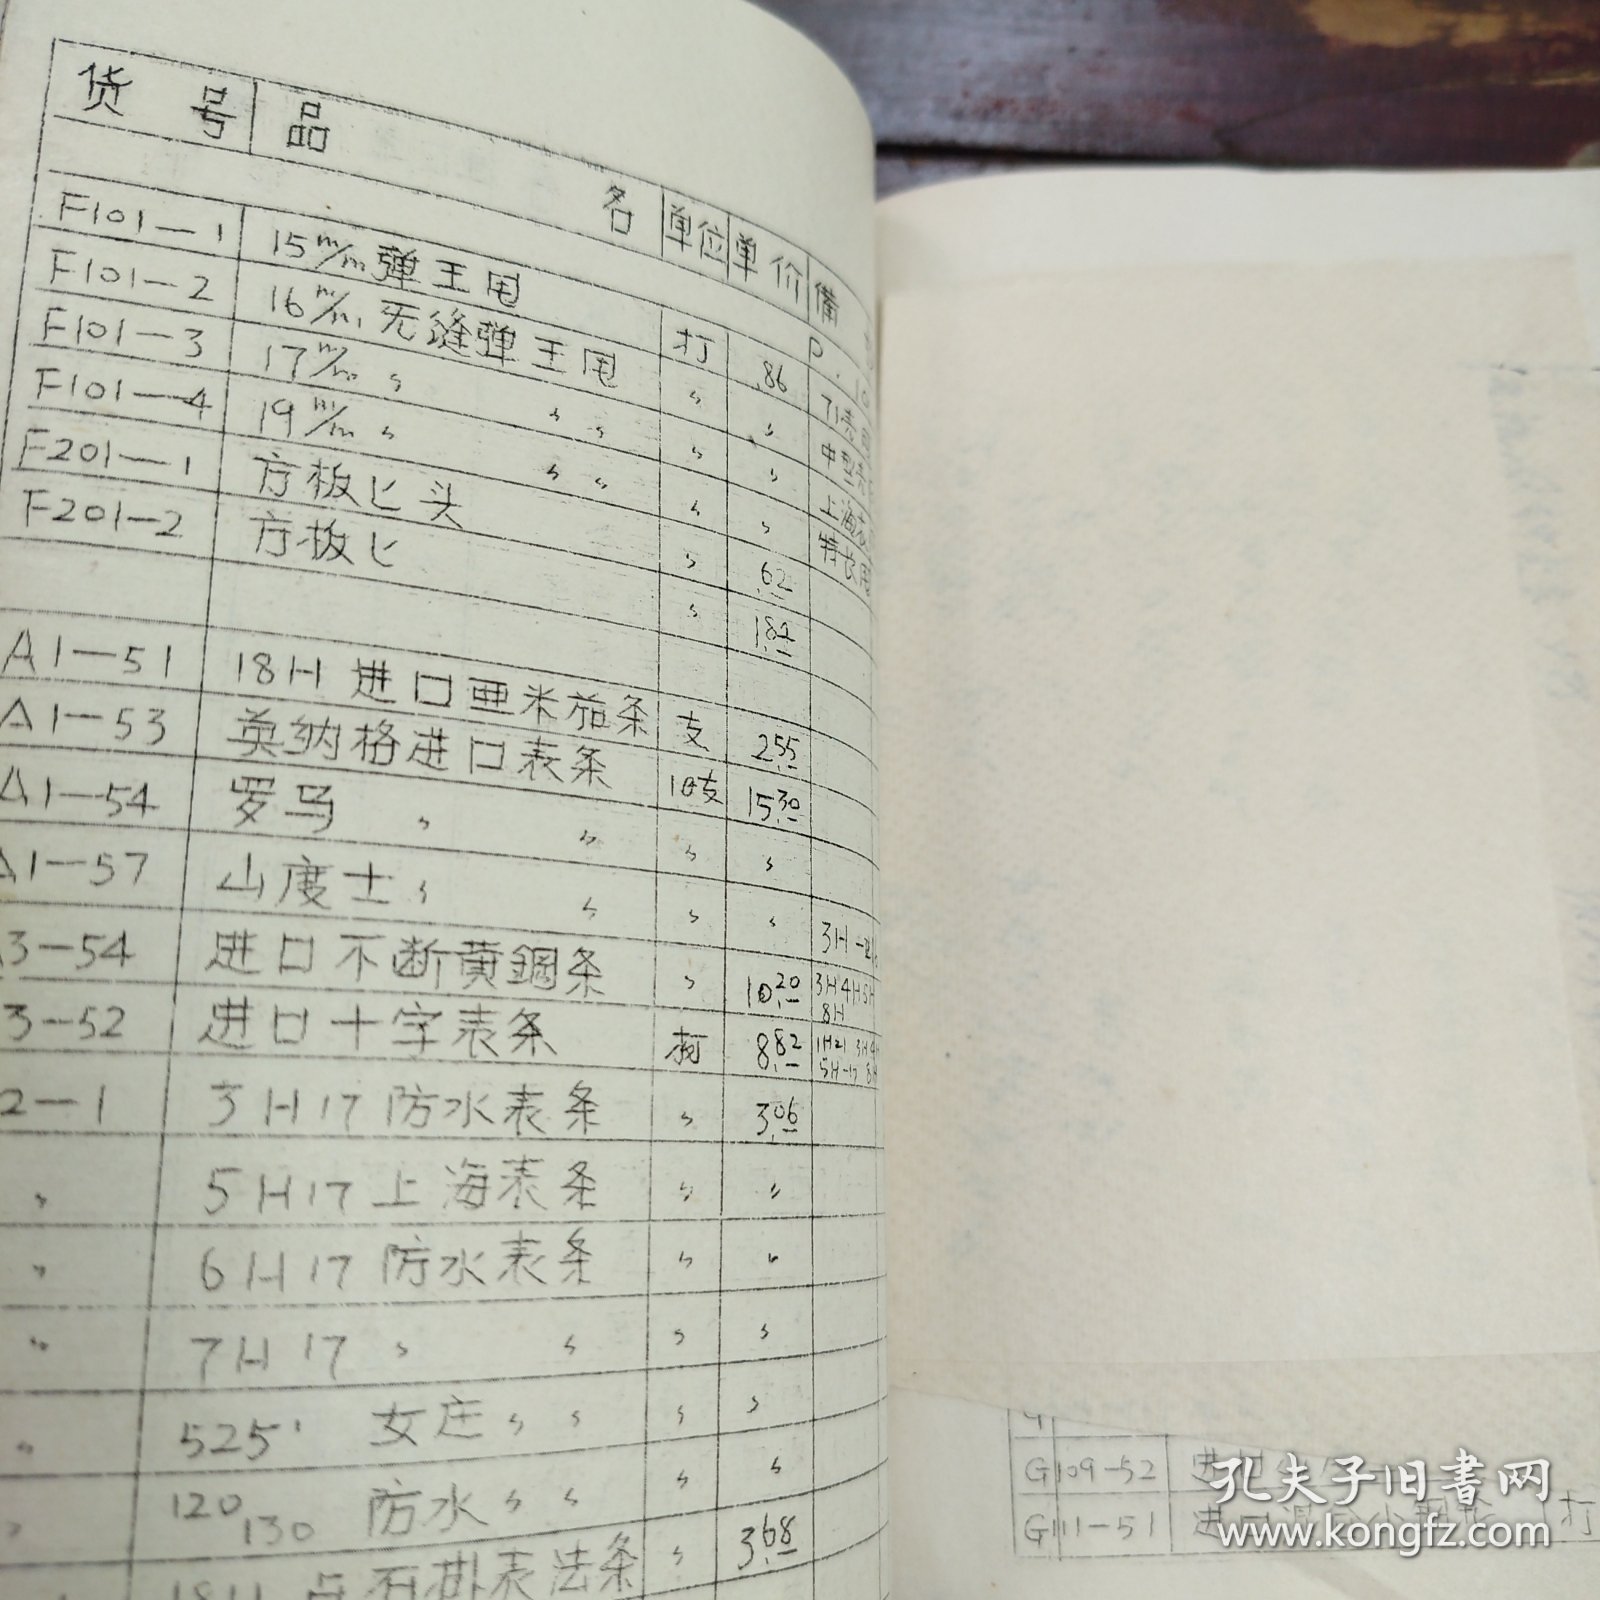 货号 品名 单位 单价 備
F101—1 15m/m弹王甩 打 .86
F101—2 16m/m无缝弹王甩 〃 〃 71表
F101—3 17m/m 〃 〃 〃 〃 〃 中型表
F101—4 19m/m 〃 〃 〃 〃 〃 上海表
F201—1 方板匕头 〃 .62 特长
F201—2 方板匕 〃 1.84
A1—51 18H 进口亜米茄条 支 2.55
A1—53 英纳格进口表条 10支 15.30
A1—54 罗马 〃 〃 〃 〃
A1—57 山度士 〃 〃 〃 〃
3—54 进口不断黄鋼条 〃 10.20 3H4H5H 8H
3—52 进口十字表条 8.82
2—1 3H17防水表条 〃 3.06
〃 5H17上海表条 〃 〃
〃 6H17防水表条 〃 〃
〃 7H17 〃 〃 〃 〃
〃 525' 女庄 〃 〃 〃 〃
〃 120/130 防水 〃 〃 〃 〃
18H 表法条 〃 3.68
G109—52 进
G111—51 进口 打
孔夫子旧書网
www.kongfz.com